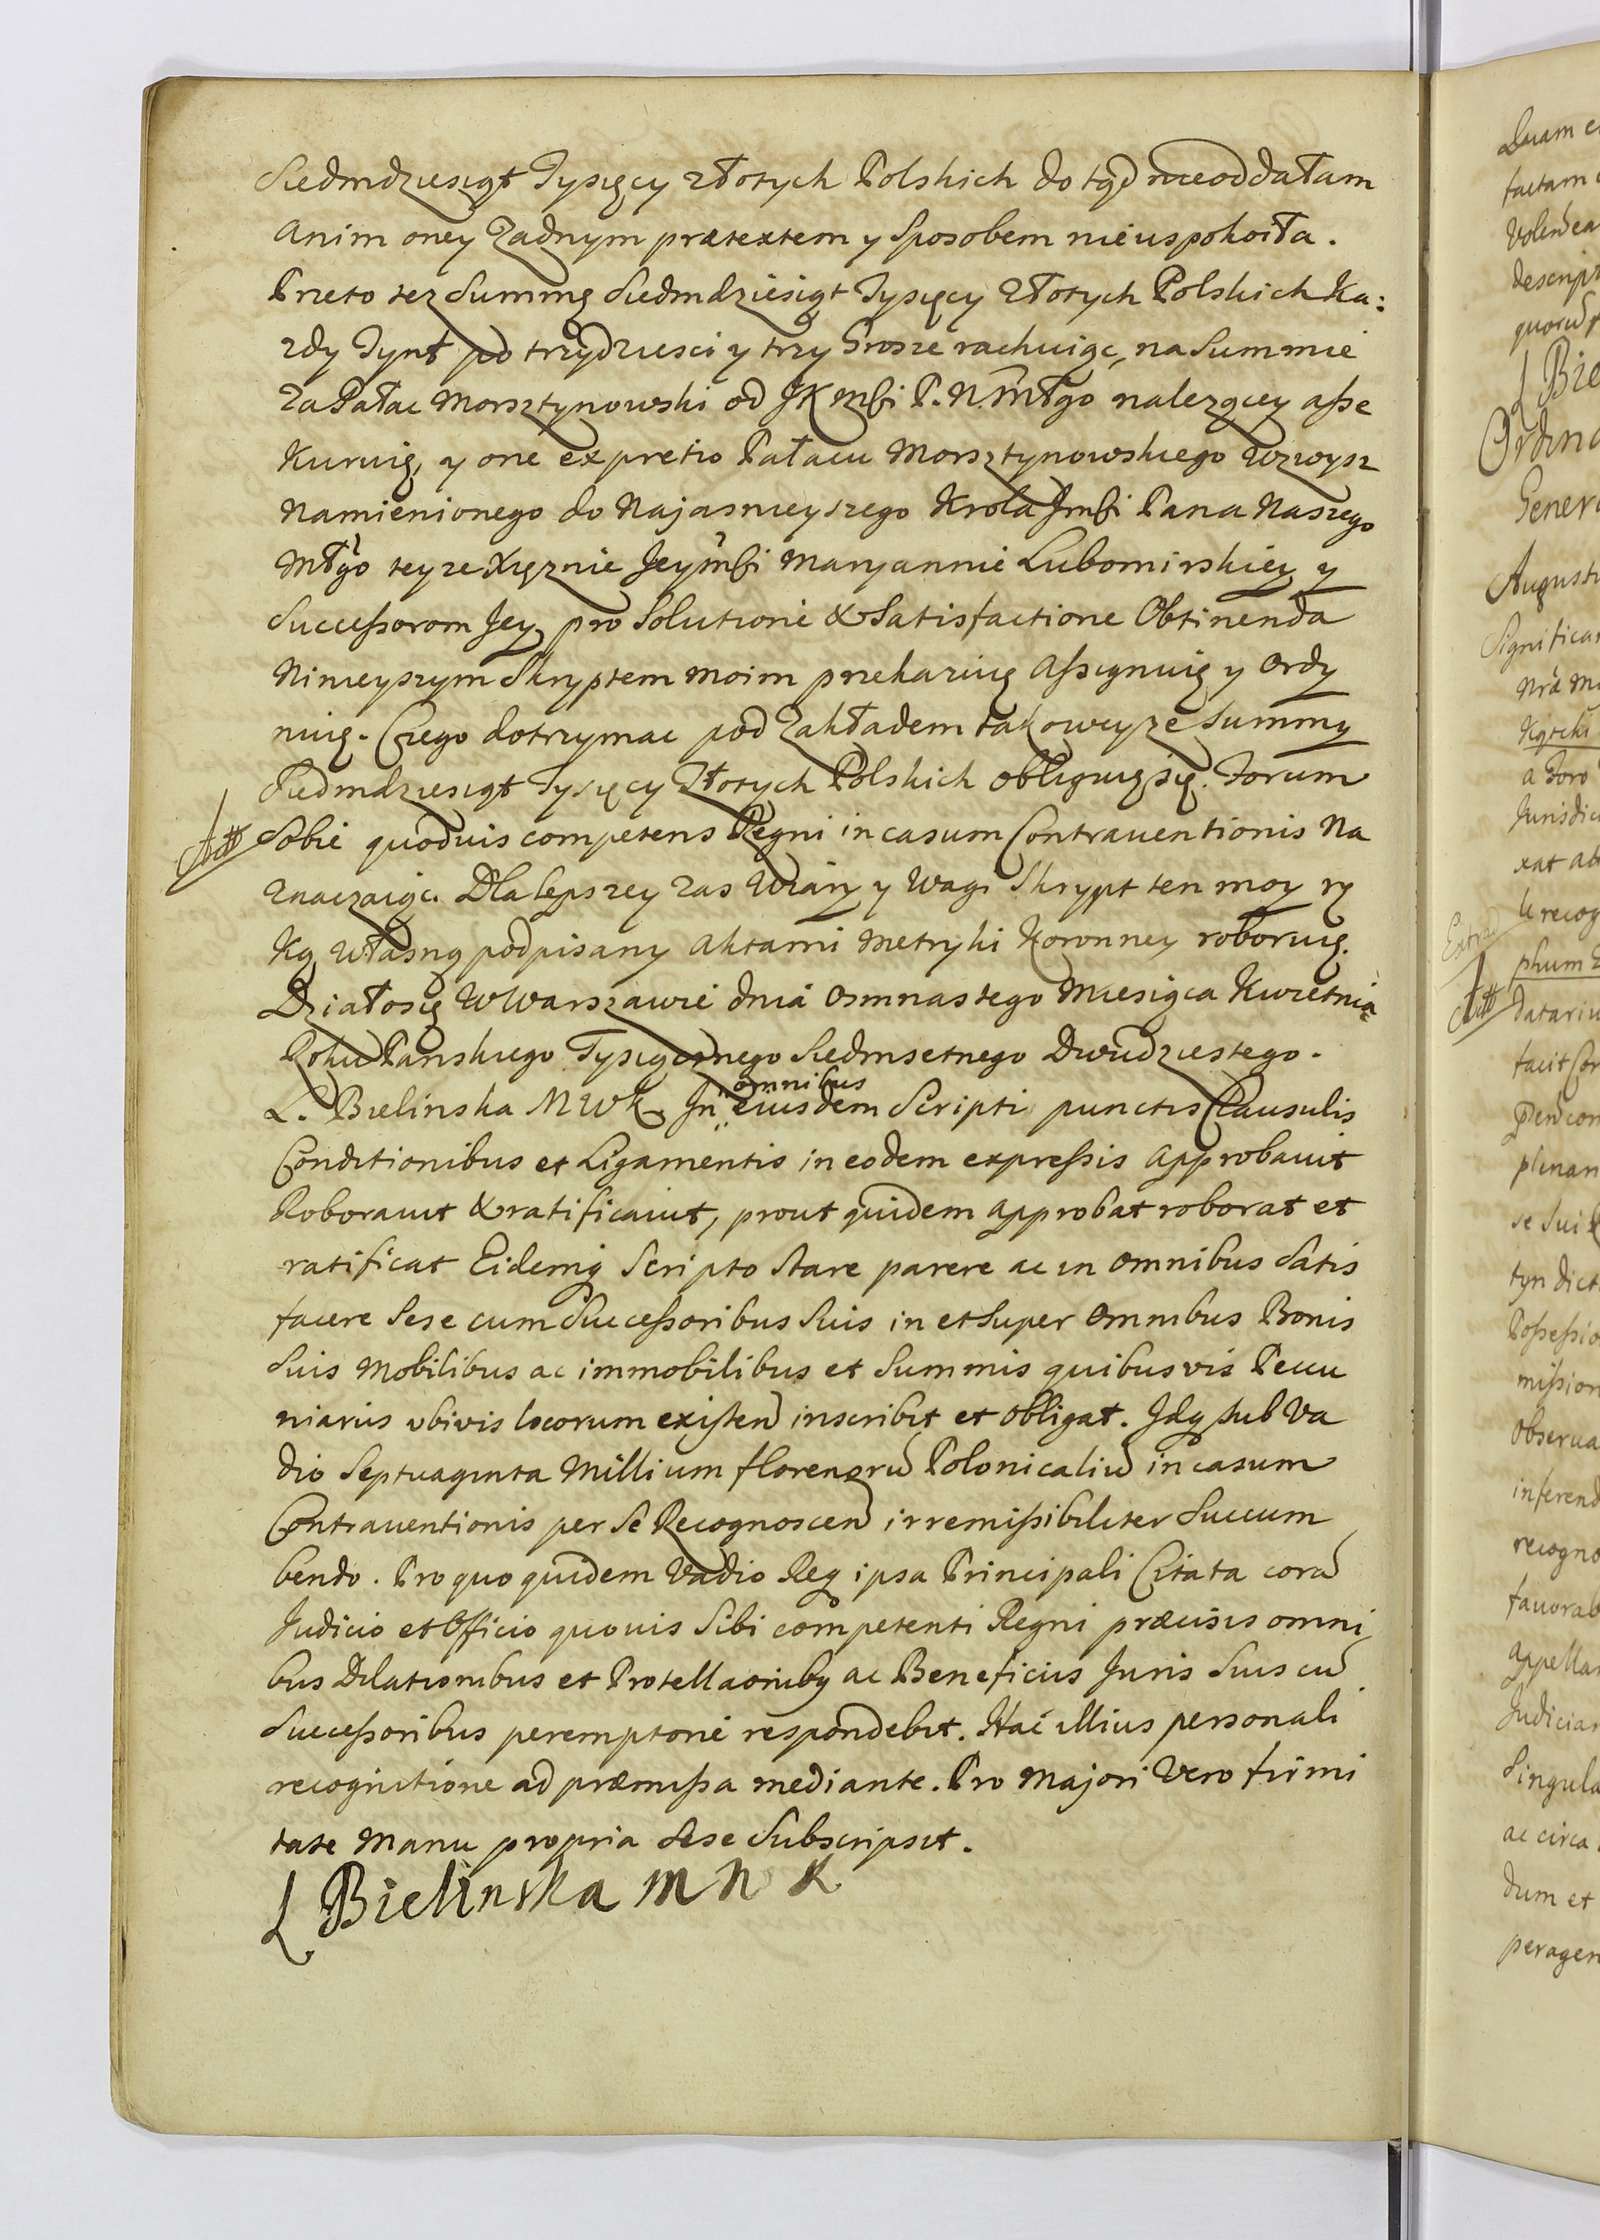 Siedmdziesiąt Tysięcy złotych Polskich do tąd nieoddałam
Anim oney żadnym prætextem y sposobem nieuspokoiła.
Przeto tez Summę Siedmdziesiąt Tysięcy Złotych Polskich Ka:
zdy Tynf po trzydziesci y trzy Grosze rachuiąc, na Summie
za Pałac Morsztynowski od JK Mści P. N. Młgo nalezącey asse
Kuruię, y one ex pretio Pałacu Morsztynowskiego wzwysz
Namienionego do Najasnieyszego Krola Jmści Pana Naszego
Młgo teyze Xięznie Jeymści Maryannie Lubomirskiey y
Successorom Jey, pro Solutione & Satisfactione Obtinenda
Ninieyszym Skryptem moim przekazuię Assignuię y Ordy
nuię. Czego dotrzymac pod zakładem takoweyze Summy
Siedmdziesiąt Tysięcy Złotych Polskich obliguię się. Forum
Sobie quoduis competens Regni in casum Contrauentionis Na
znaczaiąc. Dla lepszey zas Wiary y Wagi Skrypt ten moy rę
Ką własną podpisany Aktami Metryki Koronney roboruię.
Działosię w Warszawie dnia Osmnastego Miesiąca Kwietnia
Roku Panskiego Tysiącznego Siedmsetnego Dwudziestego.
L. Bielinska M W K. In omnibus eiusdem Scripti punctis Clausulis
Conditionibus et Ligamentis in eodem expressis approbauit
Roborauit & ratificauit, prout quidem approbat roborat et
ratificat Eidemq Scripto stare parere ac in omnibus Satis
facere Sese cum Successoribus Suis in et super omnibus Bonis
Suis Mobilibus ac immobilibus et Summis quibusvis Pecu
niariis vbivis locorum existen inscribit et obligat. Idq sub Va
dio Septuaginta Millium florenorū Polonicaliū in casum
Contrauentionis per Se Recognoscen irremissibiliter Succum
bendo. Pro quo quidem Vadio Req ipsa Principali Citata corā
Judicio et Officio quouis Sibi competenti Regni præcisis omni
bus Dilationibus et Protellaoniby ac Beneficiis Juris Suis cū
Successoribus peremptorie respondebit. Hac illius personali
recognitione ad præmissa mediante. Pro Majori Vero firmi
tate Manu propria Sese Subscripsit.
L Bielinska M N K